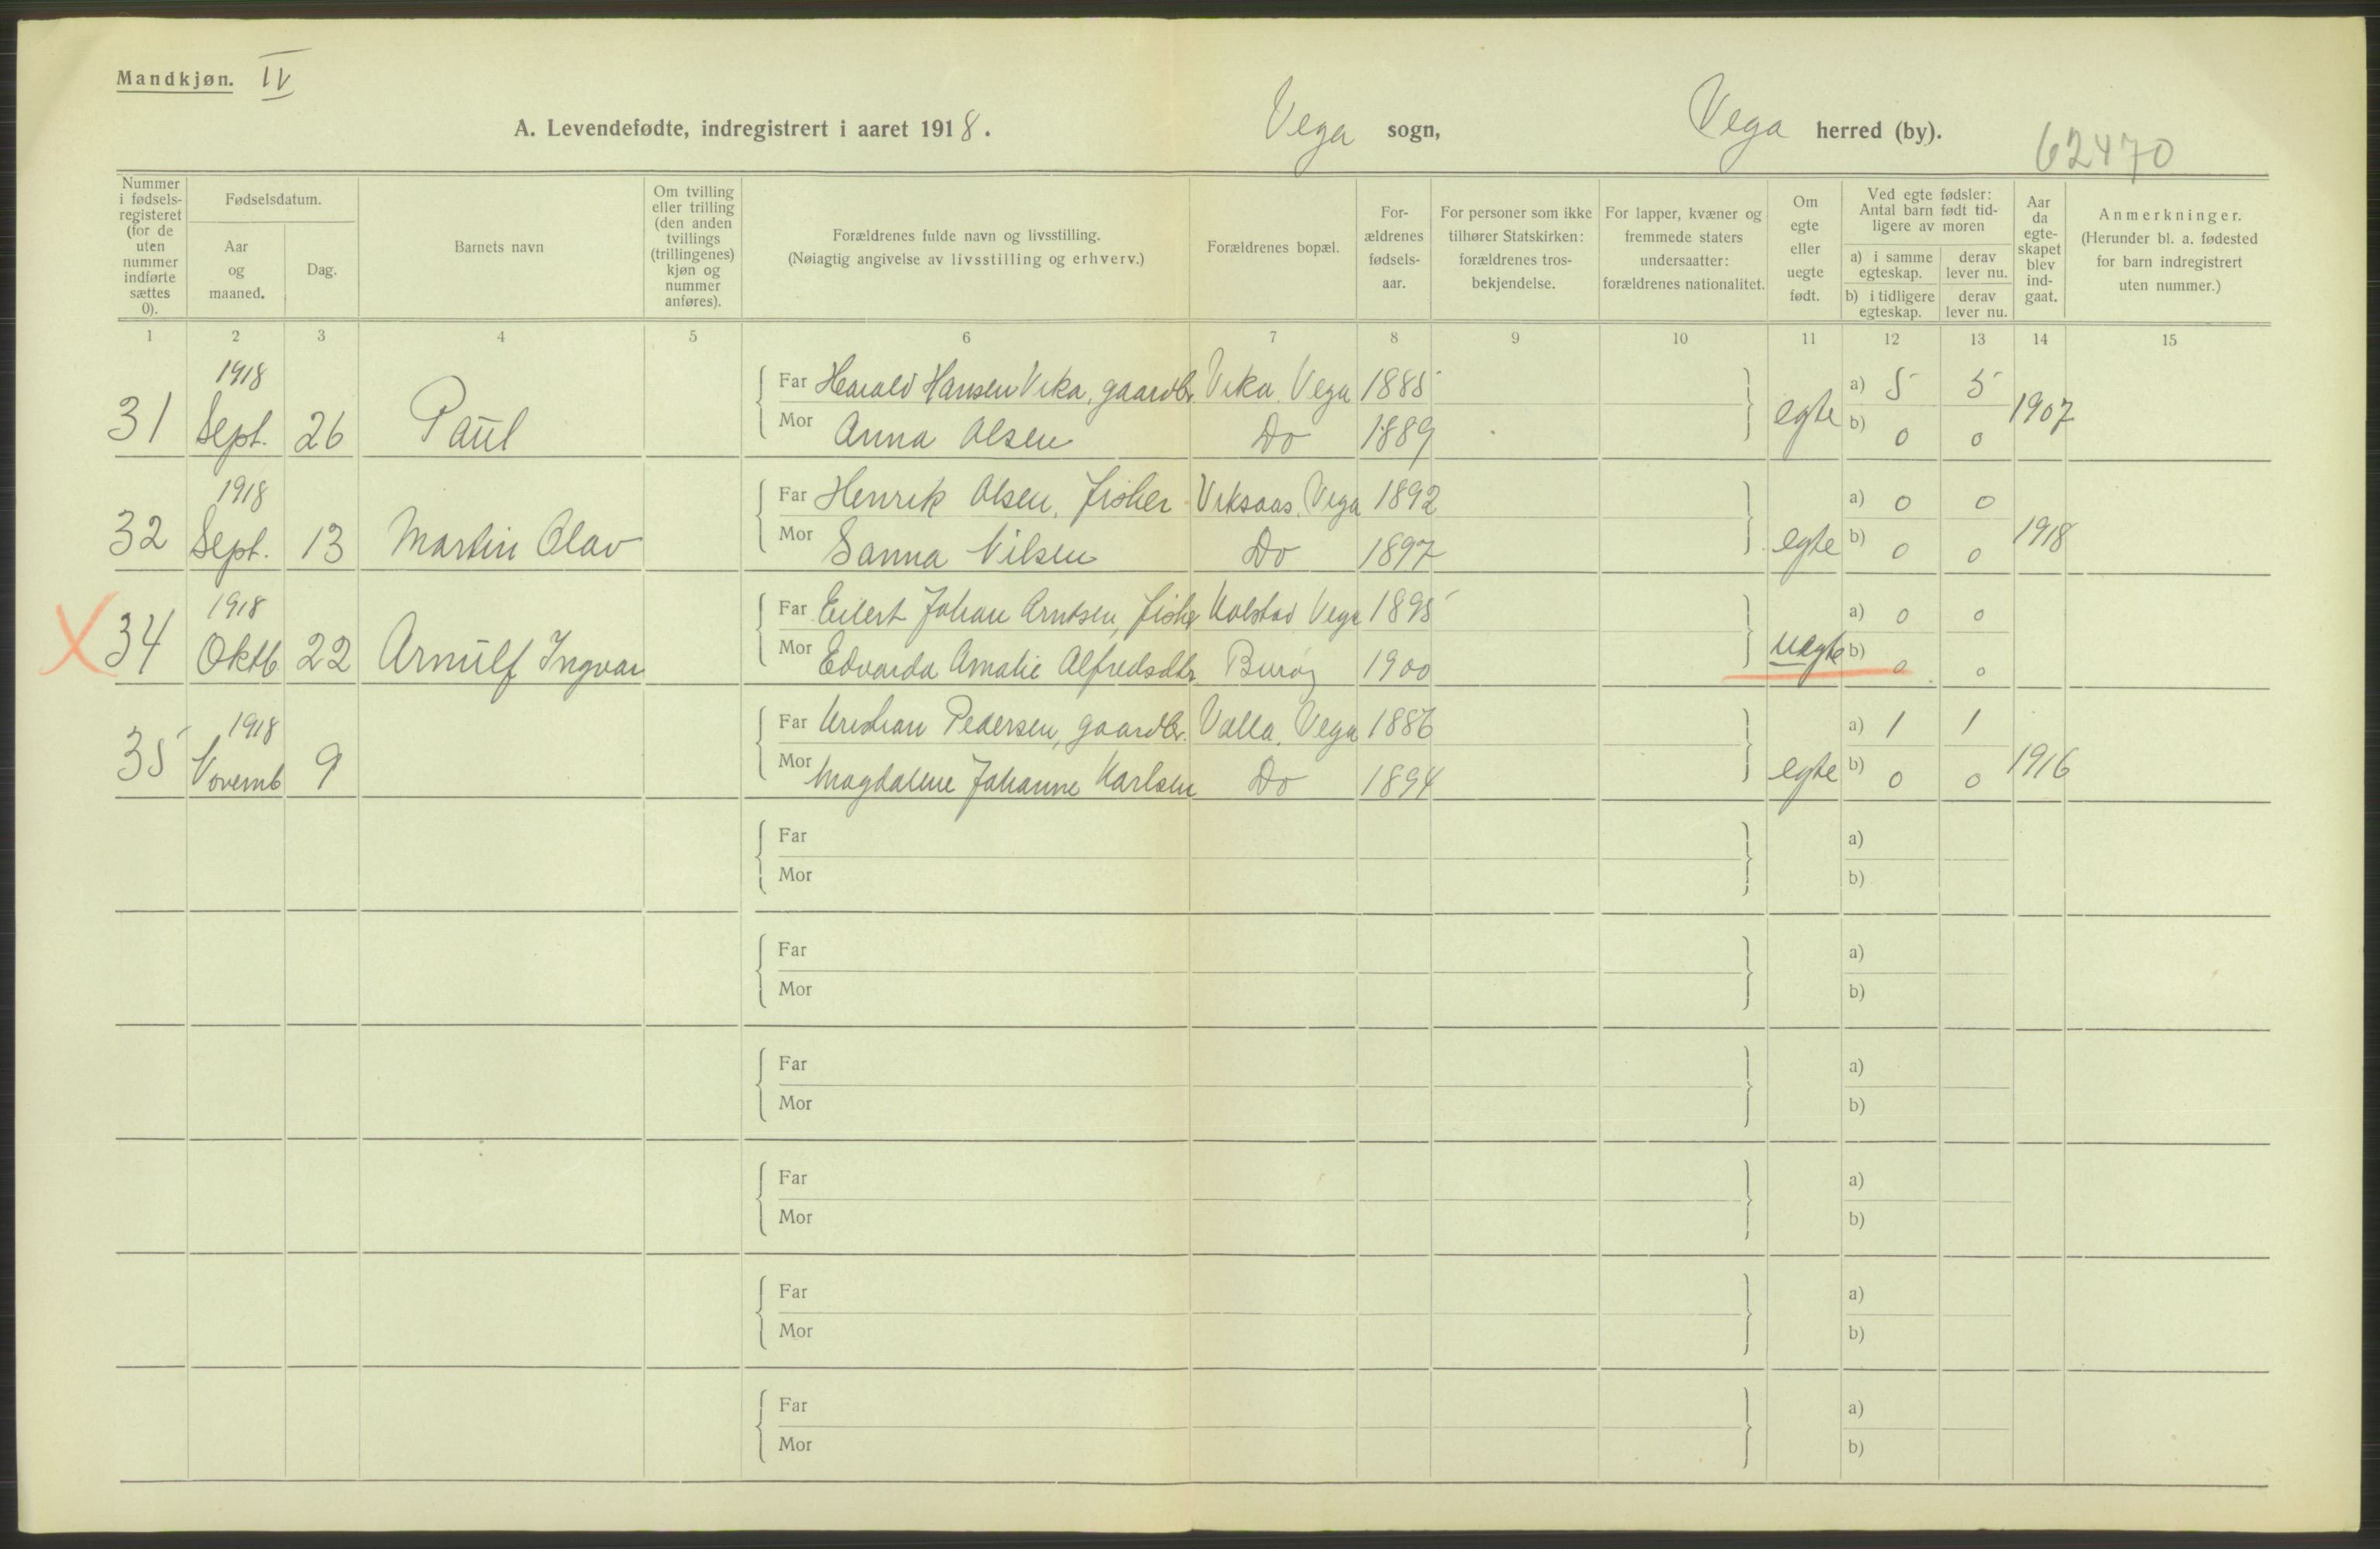 Mandkjøn. IV
A. Levendefødte, indregistrert i aaret 1918. Vega sogn, Vega herred (by). 62470
Nummer i fødsels-registeret (for de uten nummer indførte sættes 0).
Fødselsdatum.
Aar og maaned.
Dag.
Barnets navn
Om tvilling eller trilling (den anden tvillings (trillingenes) kjøn og nummer anføres).
Forældrenes fulde navn og livsstilling.
(Nøiagtig angivelse av livsstilling og erhverv.)
Forældrenes bopæl.
For-ældrenes fødsels-aar.
For personer som ikke tilhører Statskirken: forældrenes tros-bekjendelse.
For lapper, kvæner og fremmede staters undersaatter: forældrenes nationalitet.
Om egte eller uegte født.
Ved egte fødsler: Antal barn født tid-ligere av moren
a) i samme egteskap.
derav lever nu.
b) i tidligere egteskap.
derav lever nu.
Aar da egte-skapet blev ind-gaat.
Anmerkninger.
(Herunder bl. a. fødested for barn indregistrert uten nummer.)
1 2 3 4 5 6 7 8 9 10 11 12 13 14 15
1918 Far Harald Hansen Vika, gaardbr. Vika Vega 1885 a) 5 5
31 Sept. 26 Paul Mor Anna Olsen Do 1889 egte b) 0 0 1907
1918 Far Henrik Olsen, fisker Viksaas, Vega 1892 a) 0 0
32 Sept. 13 Martin Olav Mor Sanna Nilsen Do 1897 egte b) 0 0 1918
1918 Far Eilert Johan Arntsen, fisker Kolstad Vega 1895 a) 0 0
X 34 Oktb. 22 Arnulf Ingvar Mor Edvarda Amalie Alfredsdtr. Burøy 1900 uegte b) 0 0
1918 Far Kristian Pedersen, gaardbr. Valla, Vega 1886 a) 1 1
35 Novemb 9 Mor Magdalene Johanne Karlsen Do 1894 egte b) 0 0 1916
Far a)
Mor b)
Far a)
Mor b)
Far a)
Mor b)
Far a)
Mor b)
Far a)
Mor b)
Far a)
Mor b)